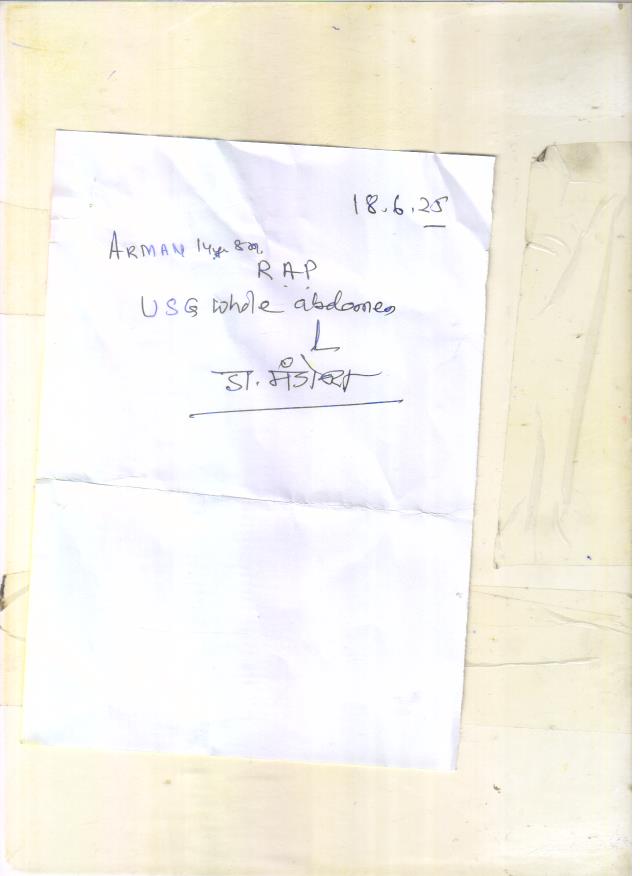 18.6.25
ARMAN 14yr 8m
R A P
USG whole abdomen
डा. मंडोवरा